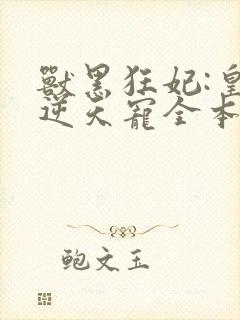 獸黑狂妃:皇
逆天寵全本
鲍文玉